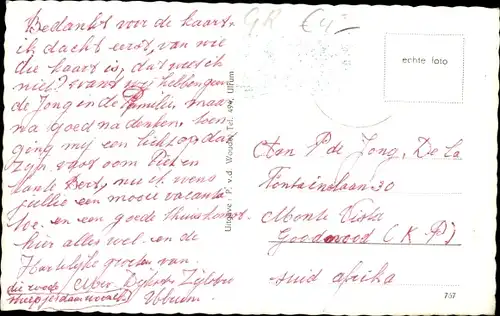 Bedankt voor de kaart,
ik dacht eerst, van wie
die kaart is, dat weet ik
niet? want wij hebben geen
de Jong in de Familie, maar
na goed nadenken, toen
ging mij een licht op, dat
zijn vast oom Piet en
tante Bert, nu ik wens
jullie een mooie vacantie
toe. en een goede thuiskomst
hier alles wel. en de
Hartelijke groeten van
die roode Mvr Dijkstra Zijlstra
Ulrum
GR €4,-
echte foto
Uitgave: P. v.d. Woude, Tel. 494, Ulrum
Aan P de Jong, De La
Fonteinelaan 30
Monte Vista
Goodwood (K P)
suid Afrika
767